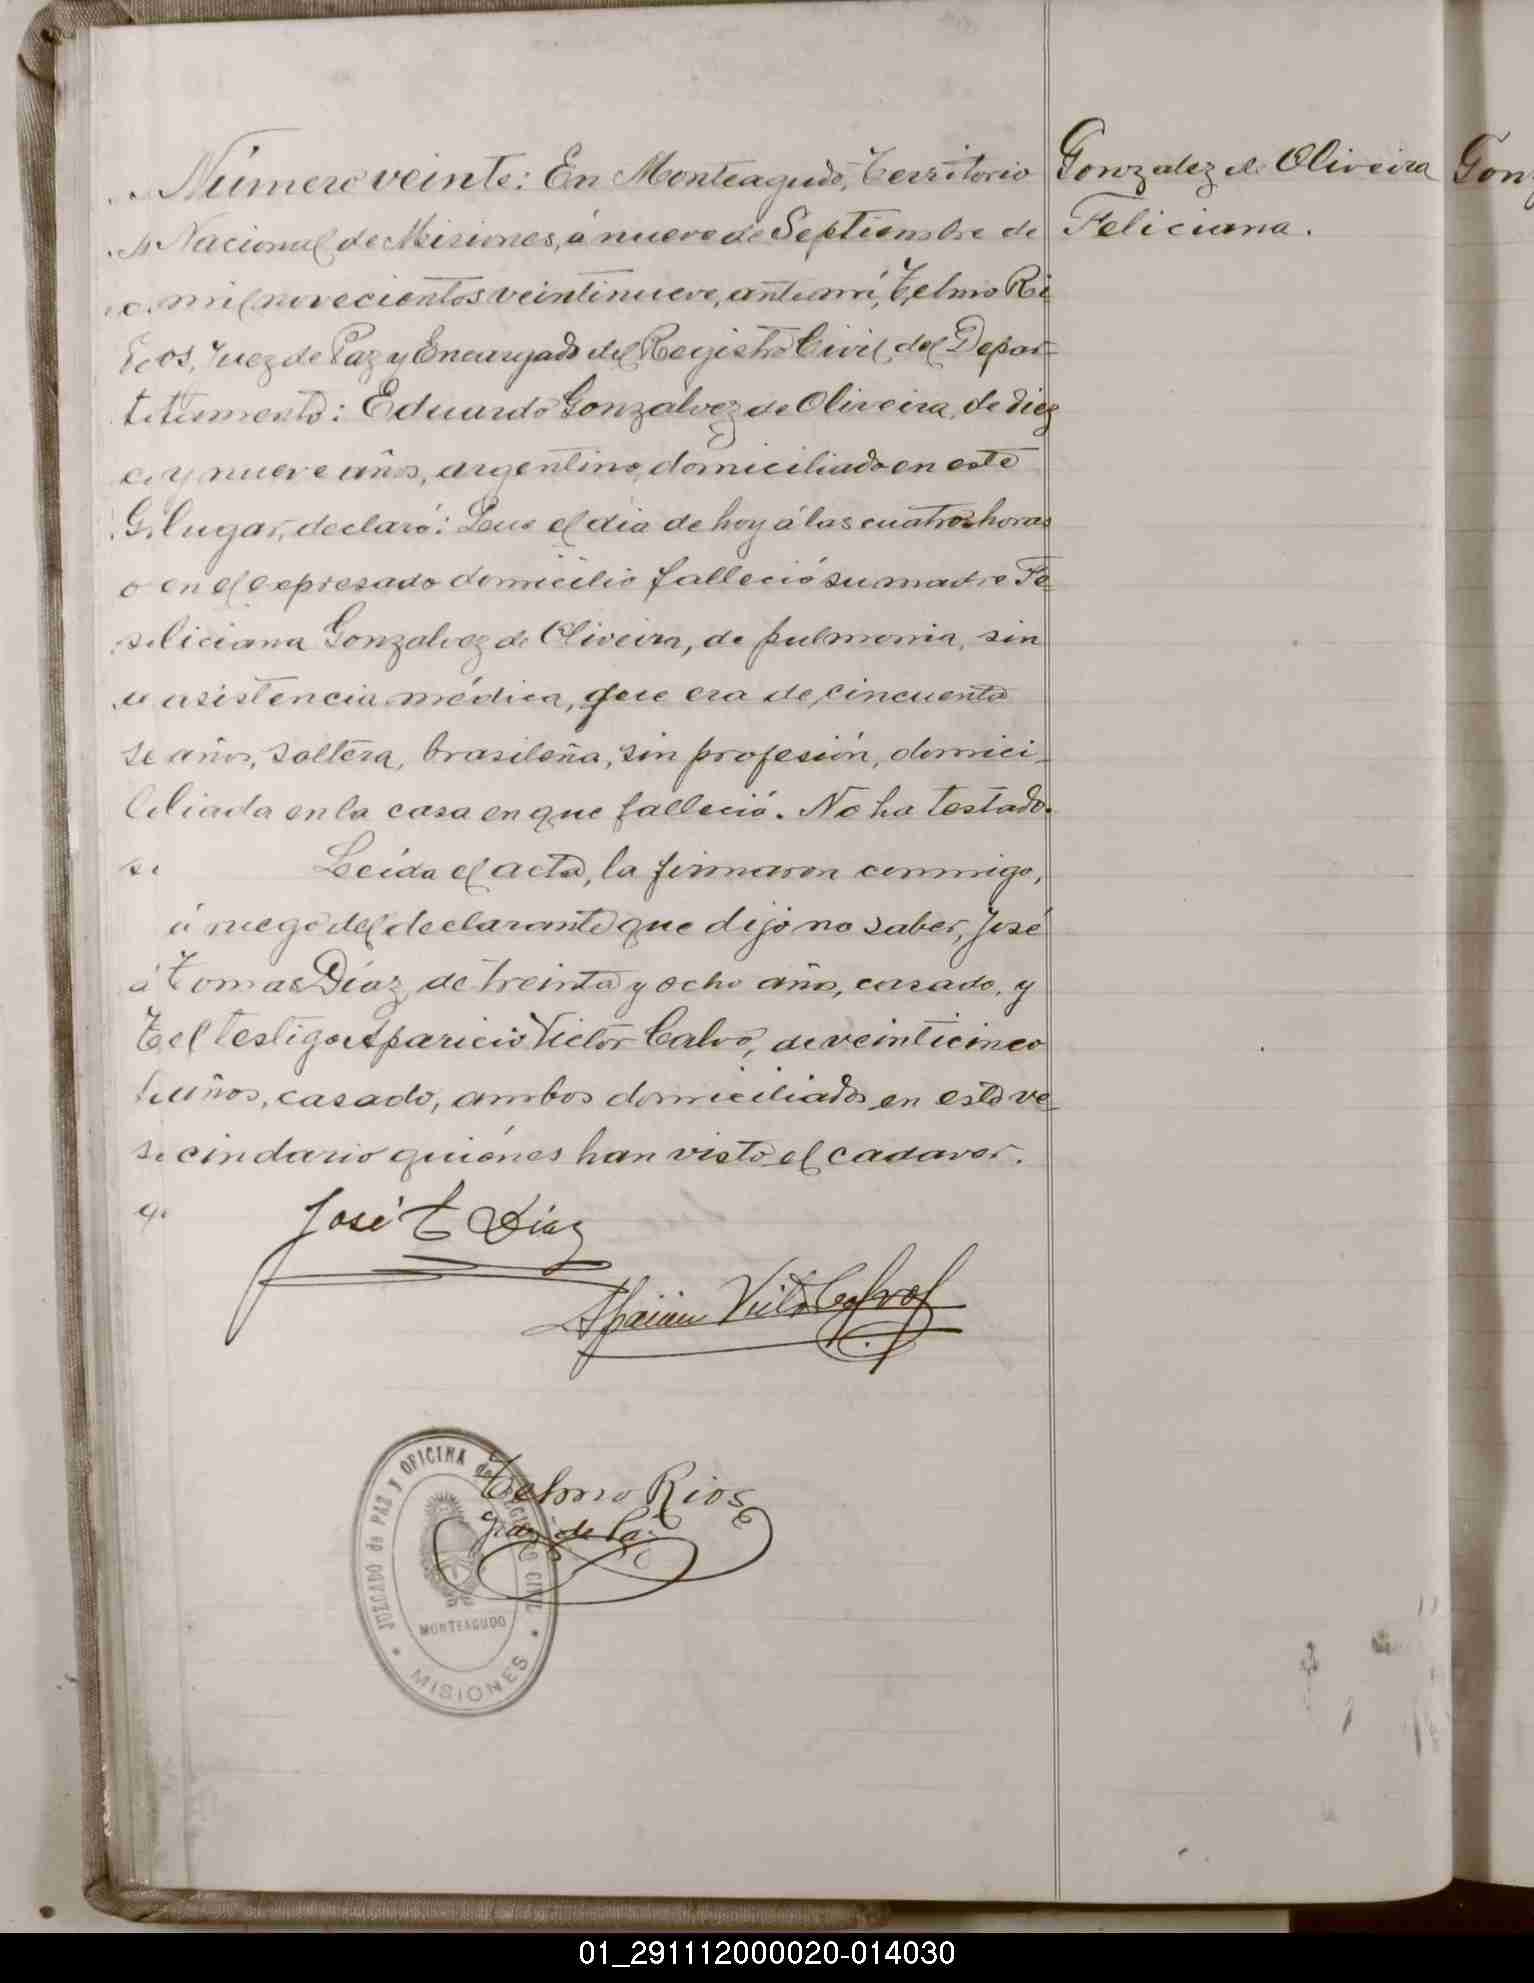 Número veinte: En Monteagudo, Territorio
Nacional de Misiones, á nueve de Septiembre de
mil novecientos veintinueve, ante mí, Telmo Ri
os, Juez de Paz y Encargado del Registro Civil del Depar-
tamento: Eduardo Gonzalvez de Oliveira, de diez
y nueve años, argentino, domiciliado en este
lugar, declaró: Que el día de hoy á las cuatro horas
en el expresado domicilio falleció su madre Fe
liciana Gonzalvez de Oliveira, de pulmonia, sin
asistencia médica, que era de cincuenta
años, soltera, brasileña, sin profesión, domici-
liada en la casa en que falleció. No ha testado.
Leída el acta, la firmaron conmigo,
á ruego del declarante que dijo no saber, José
Tomas Díaz, de treinta y ocho años, casado, y
el testigo Aparicio Victor Calvo, de veinticinco
años, casado, ambos domiciliados en este ve-
cindario quiénes han visto el cadaver.
Gonzalez de Oliveira
Feliciana.
Gon
José T Díaz
Aparicio Victor Calvo
Telmo Rios
Juez de Paz
JUZGADO de PAZ Y OFICINA del REGISTRO CIVIL
MONTEAGUDO
MISIONES
01_291112000020-014030